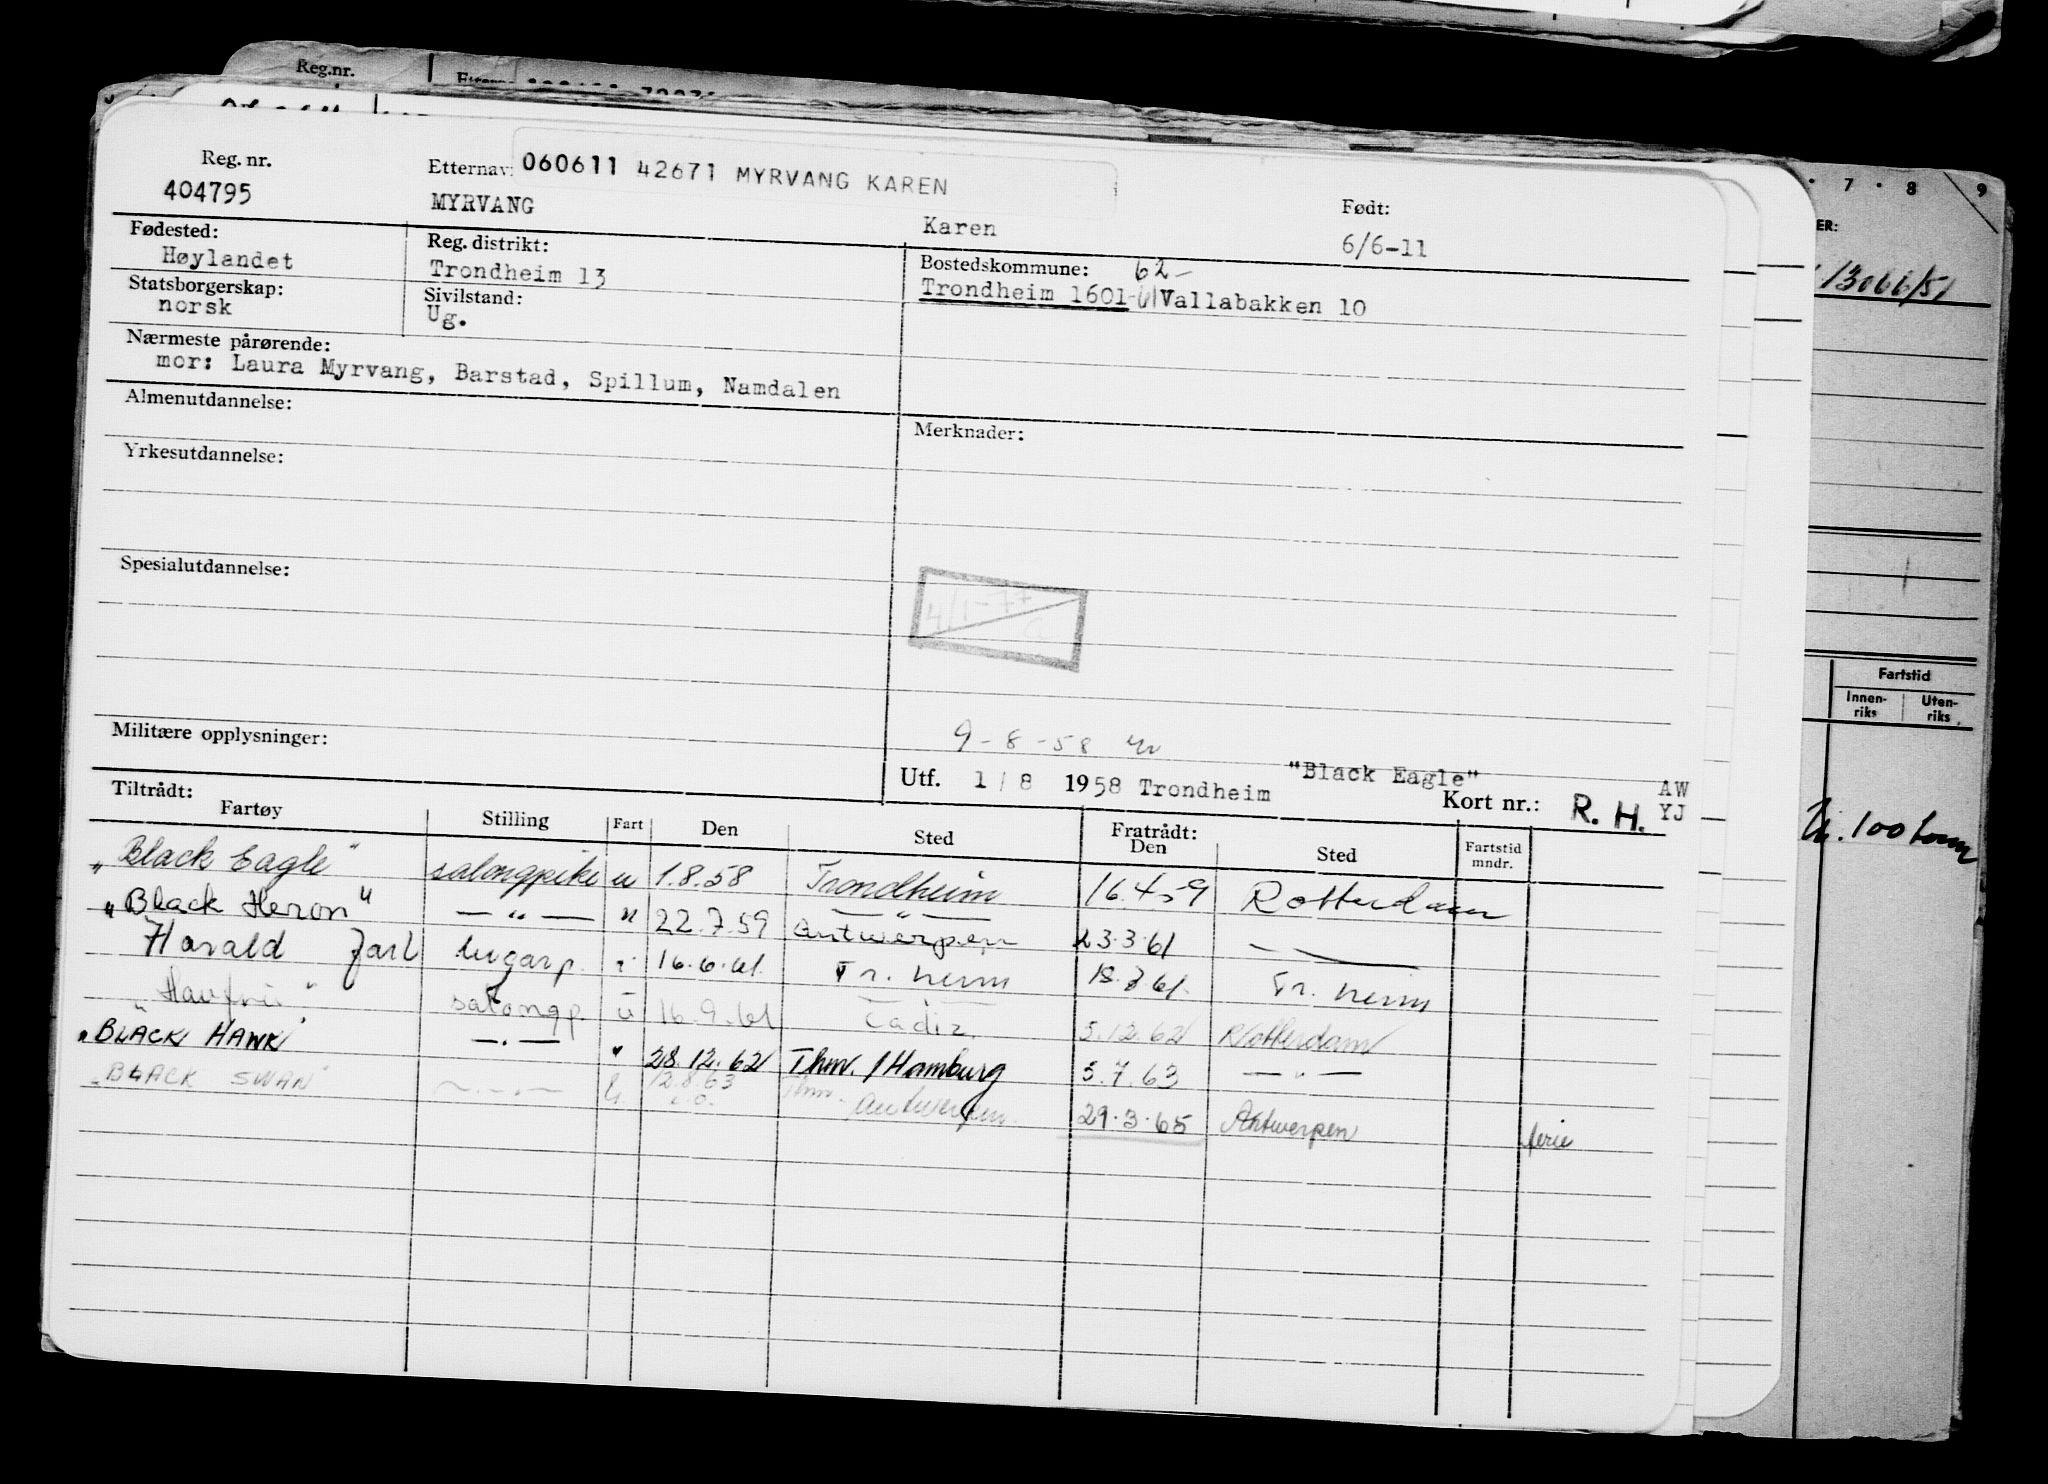 Reg.nr.
Reg. nr.
404795
Etternavn
060611 42671 MYRVANG KAREN
MYRVANG
Karen
Født:
6/6-11
Fødested:
Høylandet
Reg. distrikt:
Trondheim 13
Bostedskommune:
62-
Trondheim 1601-61 Vallabakken 10
Statsborgerskap:
norsk
Sivilstand:
Ug.
Nærmeste pårørende:
mor: Laura Myrvang, Barstad, Spillum, Namdalen
Almenutdannelse:
Merknader:
Yrkesutdannelse:
Spesialutdannelse:
4/1-77
a
Militære opplysninger:
9-8-58
Utf. 1/8 1958 Trondheim
"Black Eagle"
Kort nr.:
R. H.
AW
YJ
Tiltrådt:
Fartøy Stilling Fart Den Sted
Fratrådt:
Den Sted
Fartstid
mndr.
"Black Eagle" salongpike u 1.8.58 Trondheim 16.4.59 Rotterdam
"Black Heron" — " — " 22.7.59 Antwerpen 23.3.61 —
Harald Jarl lugarp. 16.6.61. Tr.heim 18.7.61. Tr.heim
"Havfrue" salongp. u 16.9.61 Cadiz 5.12.62 Rotterdam
"BLACK HAWK" — " — " 28.12.62 Thm./Hamburg 5.7.63 — " —
"BLACK SWAN" — " — u. 12.8.63 Thm. Antwerpen 29.3.65 Antwerpen ferie
7 · 8 · 9
ER:
13066/51
Fartstid
Innen-
riks
Uten-
riks
100